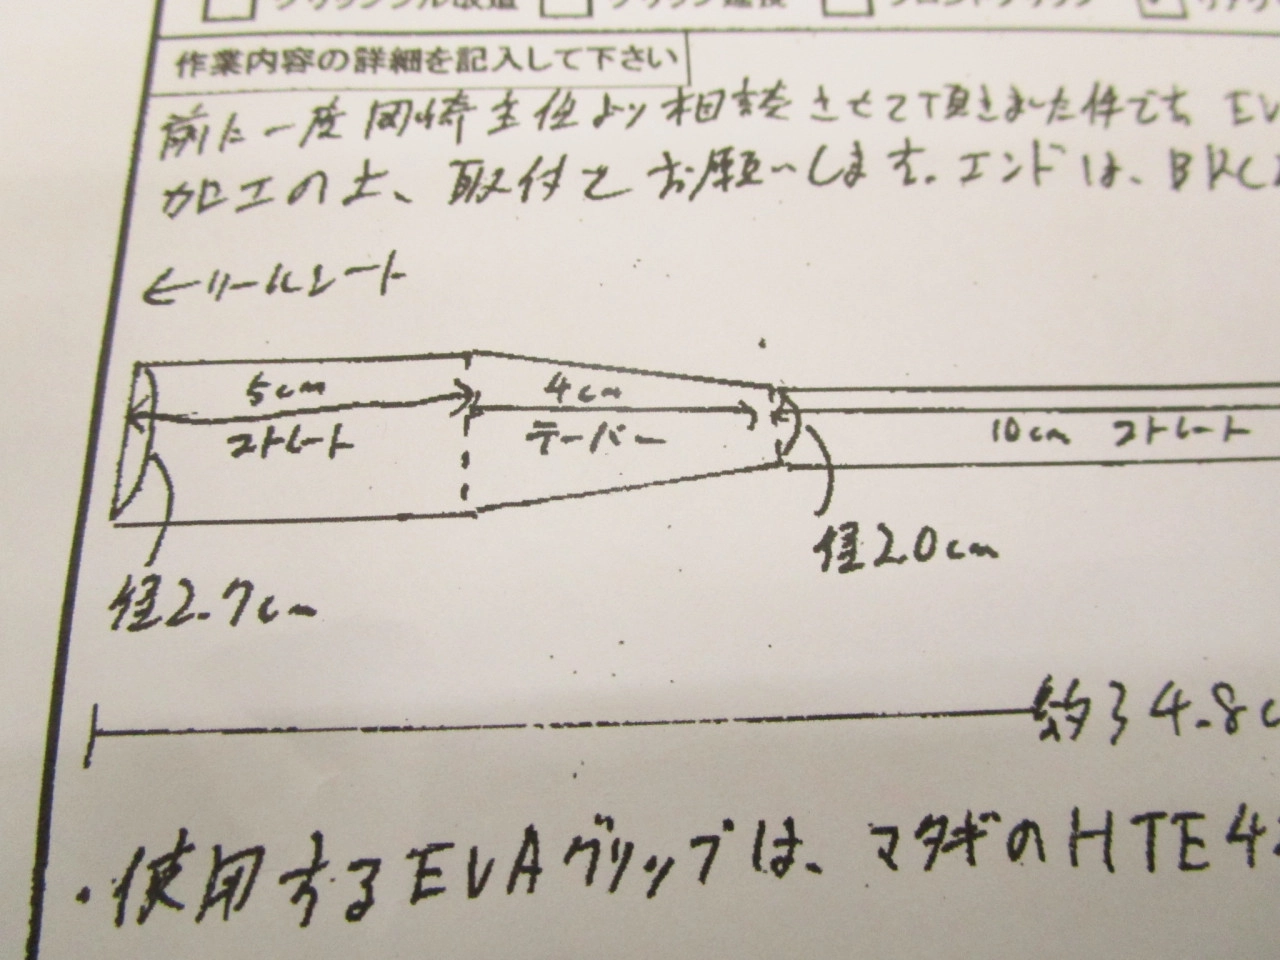 作業内容の詳細を記入して下さい
前に一度岡崎主任より相談させて頂きました件です EV
加工の上、取付をお願いします。エンドは、BRC
←リールシート
5cm
ストレート
4cm
テーパー
10cm ストレート
径2.7cm
径2.0cm
約34.8c
・使用するEVAグリップは、マタギのHTE4